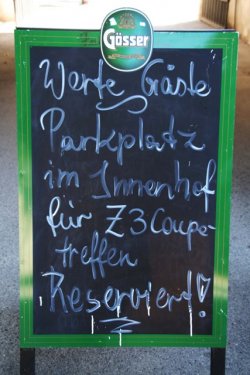 Gösser
Werte Gäste
Parkplatz
im Innenhof
für Z3 Coupe
treffen
Reserviert!